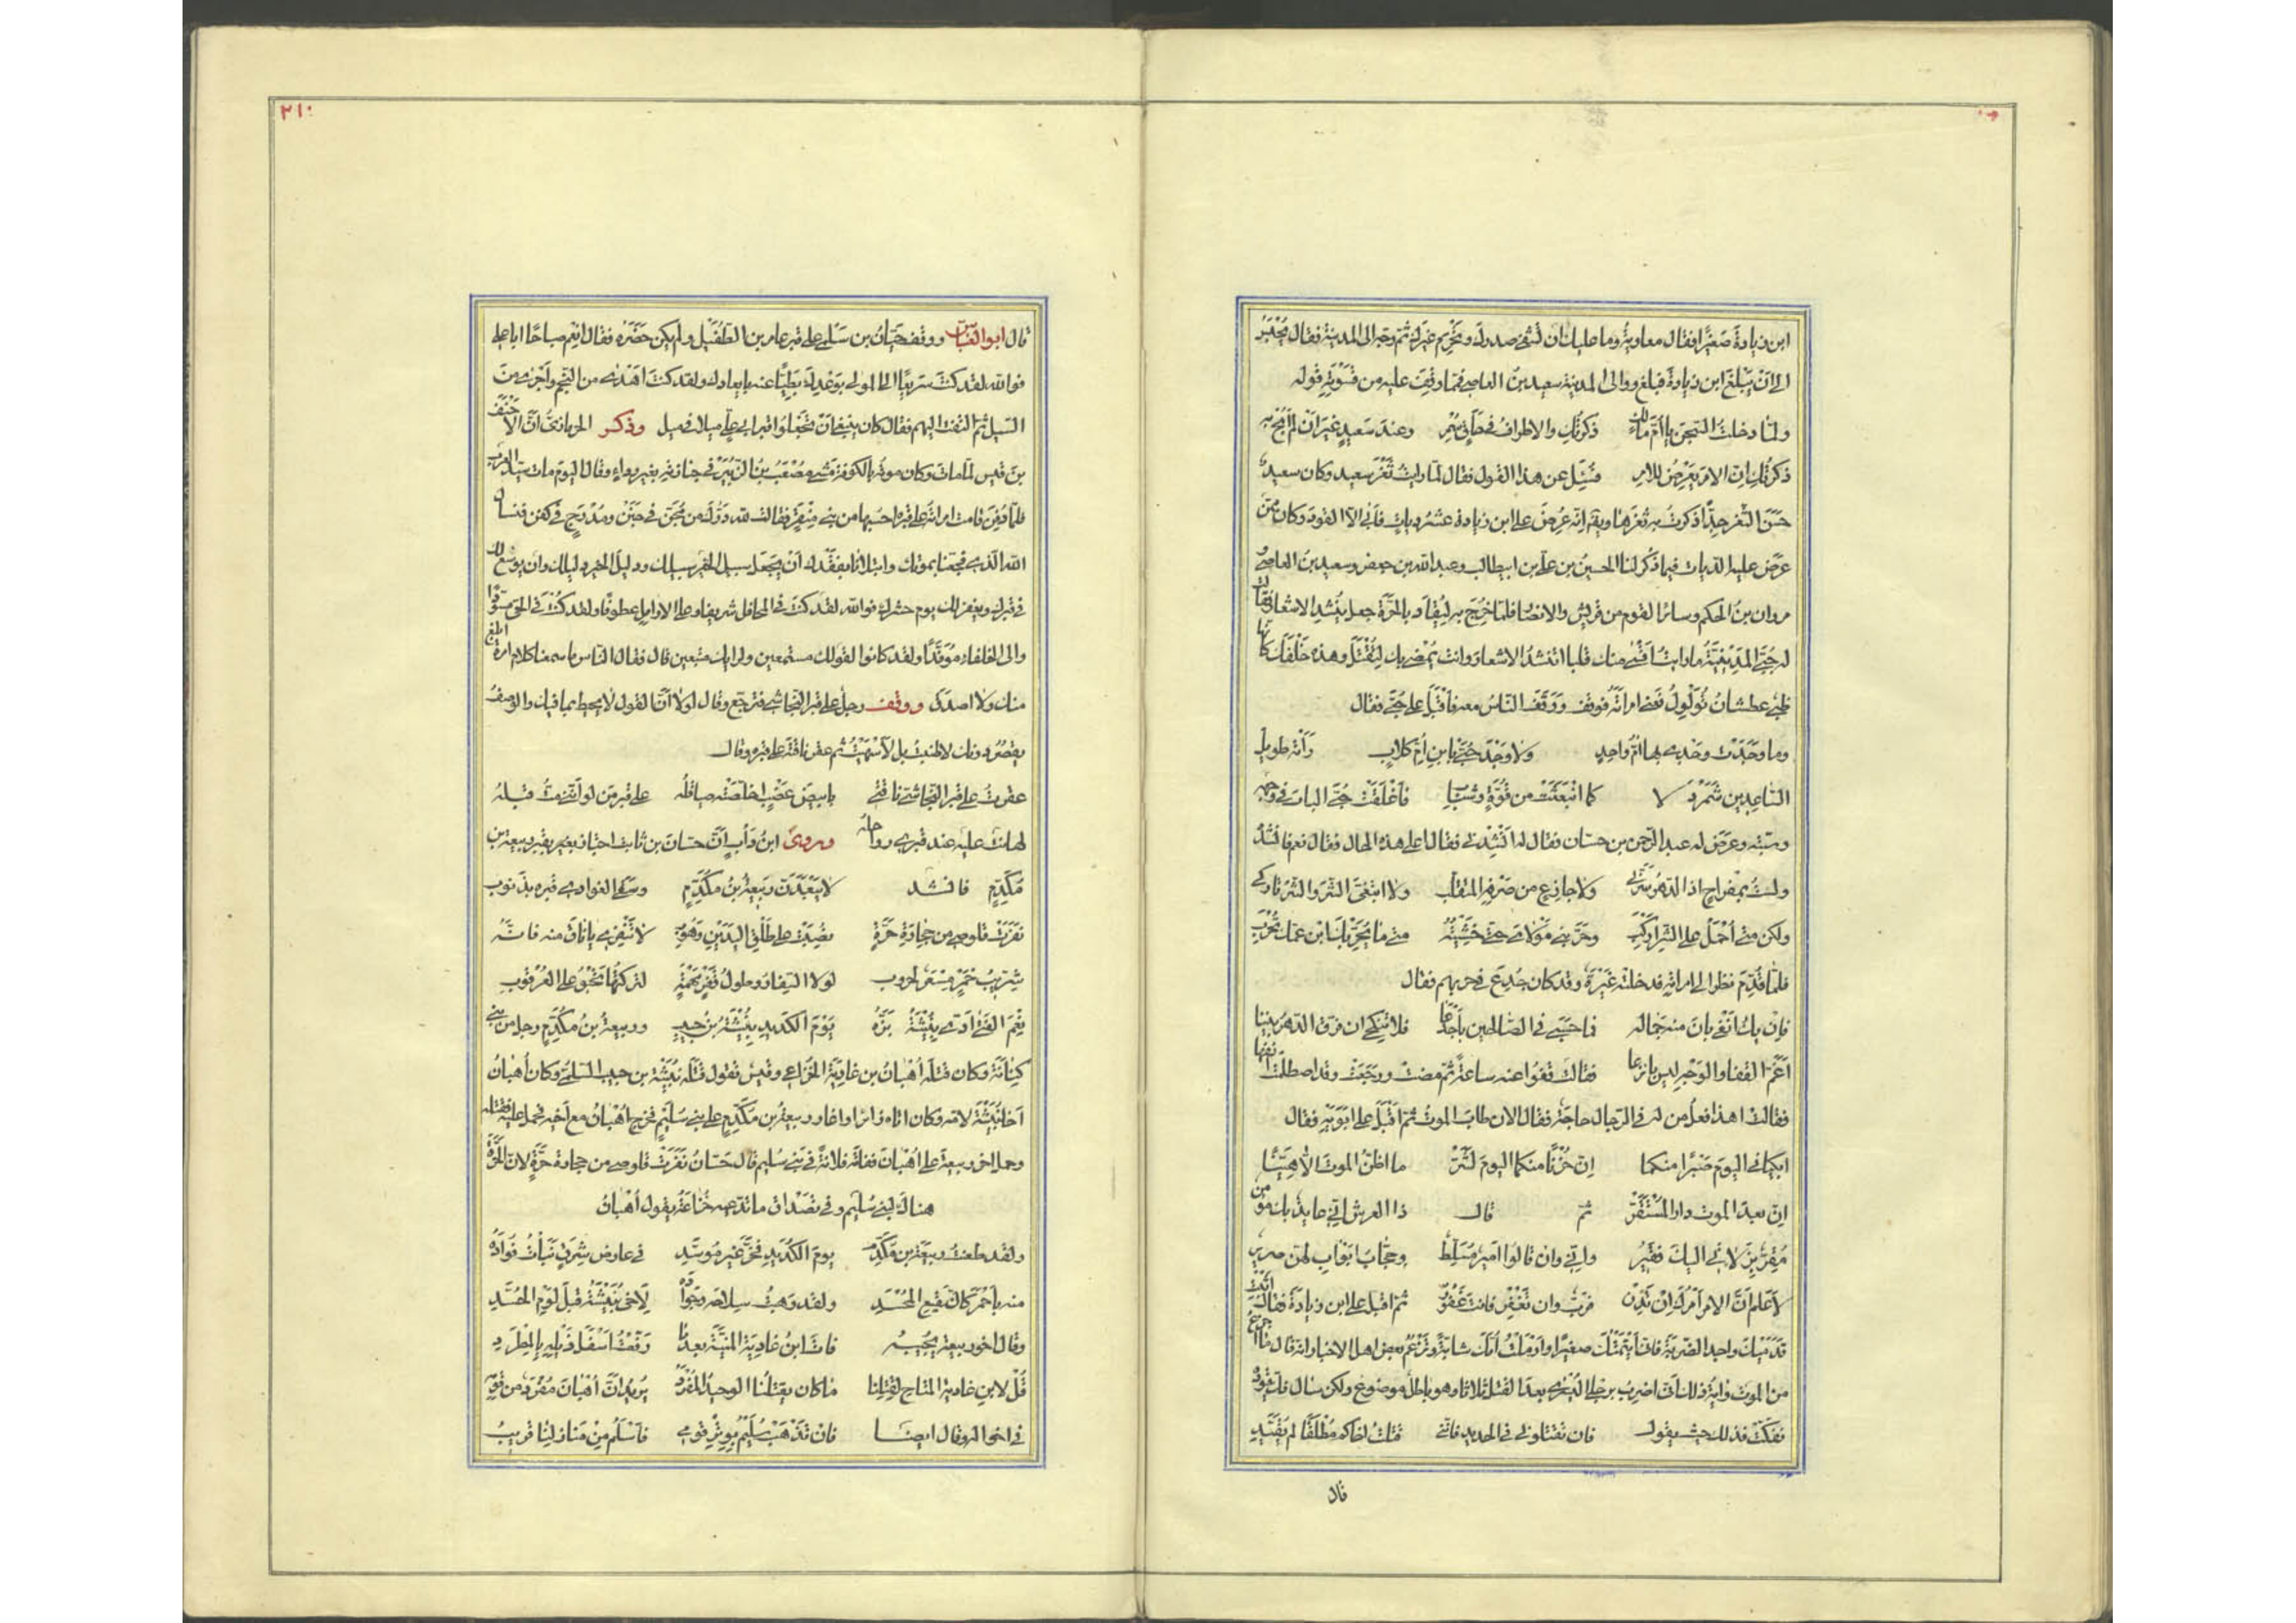 ابن زيادة صغيرا فقال معاوية وما عليك ان تشفى صدرك وتحرم غيرك ثم وجه الى المدينة فقال يحبس
الى ان يبلغ ابن زيادة فبلغ ووالى المدينة سعيد بن العاصى فمما وقف عليه من قسوته قوله
ولما دخلت السجن يا أم مالك ذكرتك والاطراف فى حلق سمر وعند سعيد غير ان لم ابح به
ذكرتك ان الامر يعرض للامر فسئل عن هذا القول فقال لما رايت ثغر سعيد وكان سعيد
حسن الثغر جدا ذكرت به ثغرها ويقم انه عرض على ابن زيادة عشر ديات فأبى الا القود وكان ممن
عرض عليه الديات فيما ذكر لنا الحسين بن على بن ابيطالب وعبد الله بن جعفر وسعيد بن العاصى و
مروان بن الحكم وسائر القوم من قريش والانصار فلما خرج به ليقاد بالحرة جعل ينشد الاشعار فقالت
له حبى المدينية ما رايت اقسى منك قلبا اتنشد الاشعار وانت يمضى بك لتقتل وهذه خلفك كانها
ظبى عطشان تولول تعنى امرأته فوقف ووقف الناس معه فاقبل على حبى فقال
وما وجدت وجدى بها أم واحد ولا وجد حبى بابن أم كلاب رأته طويل
الساعدين شمردلا كما انبعثت من قوة وشباب فأغلقت حبى الباب فى وجهه
وسبته وعرض له عبد الرحمن بن حسان فقال له انشدنى فقال اعلى هذه الحال فقال نعم فانشد
ولست بمفراح اذا الدهر سرنى ولا جازع من صرفه المتقلب ولا ابتغى الشر والشر تاركى
ولكن متى أحمل على الشر اركب وحربنى مولاى حتى خشيته متى ما يحربك ابن عمك تحرب
فلما قدم نظر الى امراته فدخلته غيرة وقد كان جدع فى حربهم فقال
فان يك انفى بان منه جماله فما حسبى فى الصالحين باجدعا فلا تنكحى ان فرق الدهر بيننا
اغم القفا والوجه ليس بانزعا فقالت قفوا عنه ساعة ثم مضت ورجعت وقد اصطلمت انفها
فقالت اهذا فعل من له فى الرجال حاجة فقال الان طاب الموت ثم اقبل على ابويه فقال
ابكيانى اليوم صبرا منكما ان حزنا منكما اليوم لشر ما اظن الموت الا هينا
ان بعد الموت دار المستقر ثم قال ذا العرش انى عائذ بك مومن
مقر بزلاتى اليك فقير وانى وان قالوا امير مسلط وحجاب ابواب لهن صرير
لاعلم ان الامر امرك ان تدن فرب وان تغفر فانت غفور ثم اقبل على ابن زيادة فقال اثبت
قدميك واجد الضربة فانى أيتمتك صغيرا وارملت أمك شابة وتزعم بعض اهل الاخبار انه قال ما اجزع
من الموت واية ذلك انى اضرب برجلى اليسرى بعد القتل ثلاثا وهو باطل موضوع ولكن سال فك قيوده
ففكت فذلك حيث يقول فان تقتلونى فى الحديد فاننى قتلت اخاكم مطلقا لم يقيد
قال
٢١٠
قال ابو العباس ووقف حيان بن سلمى على قبر عامر بن الطفيل ولم يكن حضره فقال انعم صباحا ابا على
فوالله لقد كنت سريعا الى المولى بوعدك بطيئا عنه بايعادك ولقد كنت اهدى من النجم واجرى من
السيل ثم التفت اليهم فقال كان ينبغى ان تجعلوا قبر ابى على ميلا فى ميل وذكر الحرمازى ان الاحنف
بن قيس لما مات وكان موته بالكوفة مشى مصعب بن الزبير فى جنازته بغير رداء وقال اليوم مات سيد العرب
فلما دفن قامت امرأة على قبره احسبها من بنى منقر فقالت لله درك من مجن فى جنن ومدرج فى كفن فنسال
الله الذى فجعنا بموتك وابتلانا بفقدك أن يجعل سبيل الخير سبيلك ودليل الخير دليلك وان يوسع لك
فى قبرك ويغفر لك يوم حشرك فوالله لقد كنت فى المحافل شريفا وعلى الارامل عطوفا ولقد كنت فى الحى مسودا
والى الخلفاء موفدا ولقد كانوا لقولك مستمعين ولرايك متبعين قال فقال الناس ما سمعنا كلام امرأة ابلغ
منك ولا اصدق ووقف رجل على قبر النجاشى فترجع وقال لولا أن القول لا يحيط بما فيك والوصف
يقصر دونك لاطنبت بل لاسهبت ثم عقر ناقته على قبره وقال
عقرت على قبر النجاشى ناقتى بابيض عضب اخلصته صياقله على قبر من لو اننى مت قبله
لهانت عليه عند قبرى رواحله وروى ابن دأب أن حسان بن ثابت اجتاز بقبر ربيعة بن
مكدم فانشد لا يبعدن ربيعة بن مكدم وسقى الغوادى قبره بذنوب
نفرت قلوصى من حجارة حرة نصبت على طلق اليدين وهوب لا تنفرى يا ناق منه فانه
شريب خمر مسعر لحروب لولا السفار وطول قفر مهمه لتركتها تحبو على العرقوب
نعم الفتى ادى نبيشة بزه يوم الكديد نبيشة بن حبيب وربيعة بن مكدم رجل من بنى
كنانة وكان قتله أهبان بن غادية الخزاعى وقيس تقول قتله نبيشة بن حبيب السلمى وكان أهبان
اخا نبيشة لامه وكان اتاه زائرا واغار ربيعة بن مكدم على بنى سليم فخرج اهبان مع اخيه فحمل عليه فقتله
وحمل اخو ربيعة على أهبان ففاته فلانة فى بنى سليم قال حسان نفرت قلوصى من حجارة حرة لان الحرة
هناك لبنى سليم وفى تصداق ما تدعيه خزاعة يقول أهبان
ولقد طعنت ربيعة بن مكدم يوم الكديد فخر غير موسد فى عارض شرق نبات فؤاده
منه باحمر كان نقيع المجسد ولقد وهبت سلاحه وجواده لاخى نبيشة قبل لوم الحسد
وقال اخو ربيعة يجيبه فات ابن غادية المنية بعدما رفعت اسفل ذيله بالمطرد
قل لابن غادية المتاح لقتلنا ما كان يقتلنا الوحيد المفرد يريد ان أهبان مفرد من قومه
فى اخواله وقال ايضا فان تذهب سليم بوتر قومى فاسلم من منازلنا قريب